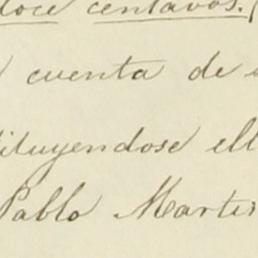 doce centavos.
cuenta de
tituyendose ell
Pablo Marti